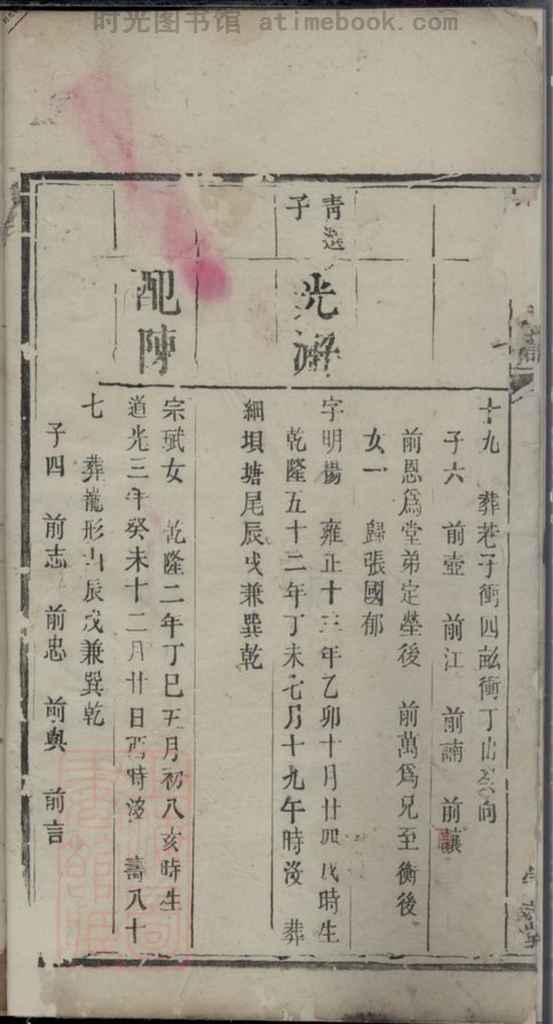 时光图书馆 atimebook.com
十九 葬老子衝四 衝丁山 向
子六 前壺 前江 前 前讓
前恩爲堂弟定 後 前萬爲兄至衡後
女一 歸張國郁
青選
子
光
字明楊 雍正十三年乙卯十月廿四戌時生
乾隆五十二年丁未七月十九午時没 葬
細垻塘尾辰戌兼巽乾
配陳
宗斌女 乾隆二年丁巳五月初八亥時生
道光三年癸未十二月廿日酉時没 壽八十
七 葬龍形山辰戌兼巽乾
子四 前志 前忠 前與 前言